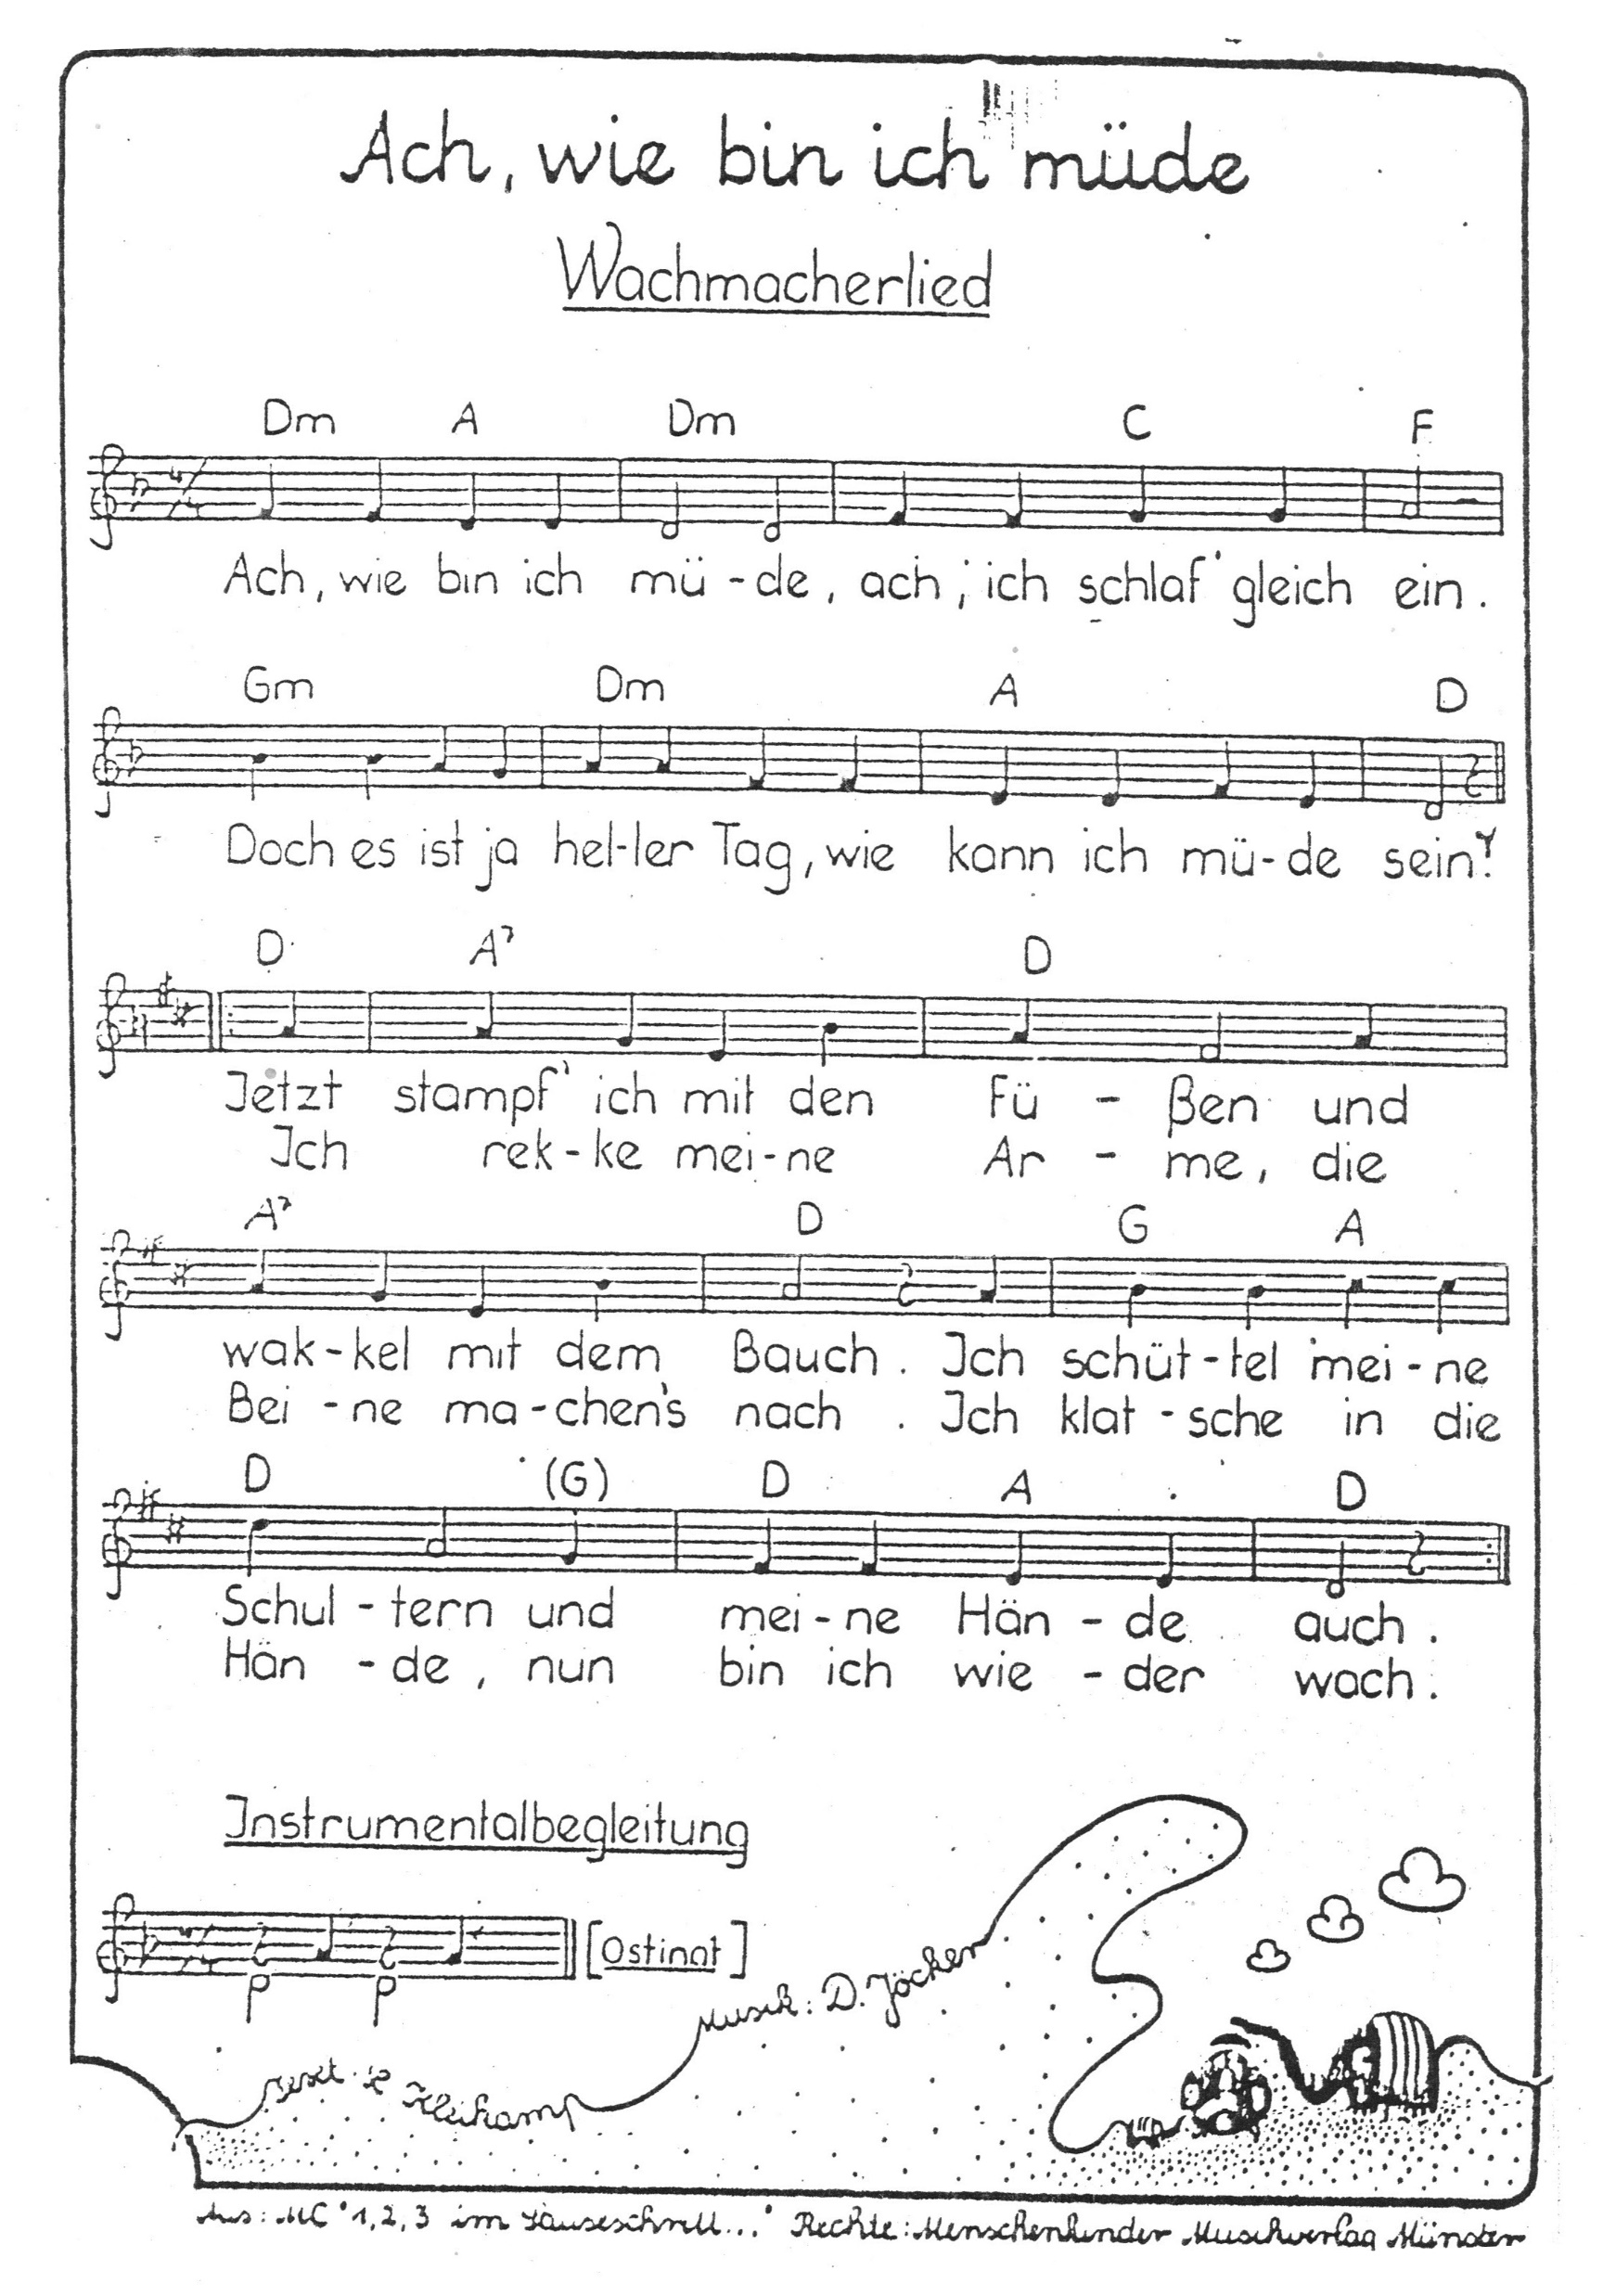 Ach, wie bin ich müde
Wachmacherlied
Dm A Dm C F
Ach, wie bin ich mü-de, ach, ich schlaf' gleich ein.
Gm Dm A D
Doch es ist ja hel-ler Tag, wie kann ich mü-de sein?
D A7 D
Jetzt stampf' ich mit den Fü - ßen und
Ich rek-ke mei-ne Ar - me, die
A7 D G A
wak-kel mit dem Bauch. Ich schüt-tel mei-ne
Bei-ne ma-chen's nach. Ich klat-sche in die
D (G) D A D
Schul-tern und mei-ne Hän-de auch.
Hän-de, nun bin ich wie-der wach.
Instrumentalbegleitung
[Ostinat]
Musik: D. Jöcker
Kleikamp
Aus: MC "1,2,3 im Sauseschritt..." Rechte: Menschenkinder Musikverlag Münster